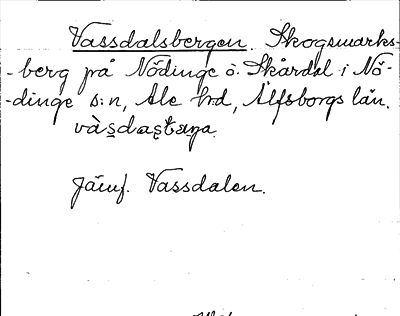 Vassdalsbergen. Skogsmarks-
-berg på Nödinge o. Skårdal i Nö-
-dinge s:n, Ale hd, Älfsborgs län.
Jämf. Vassdalen.